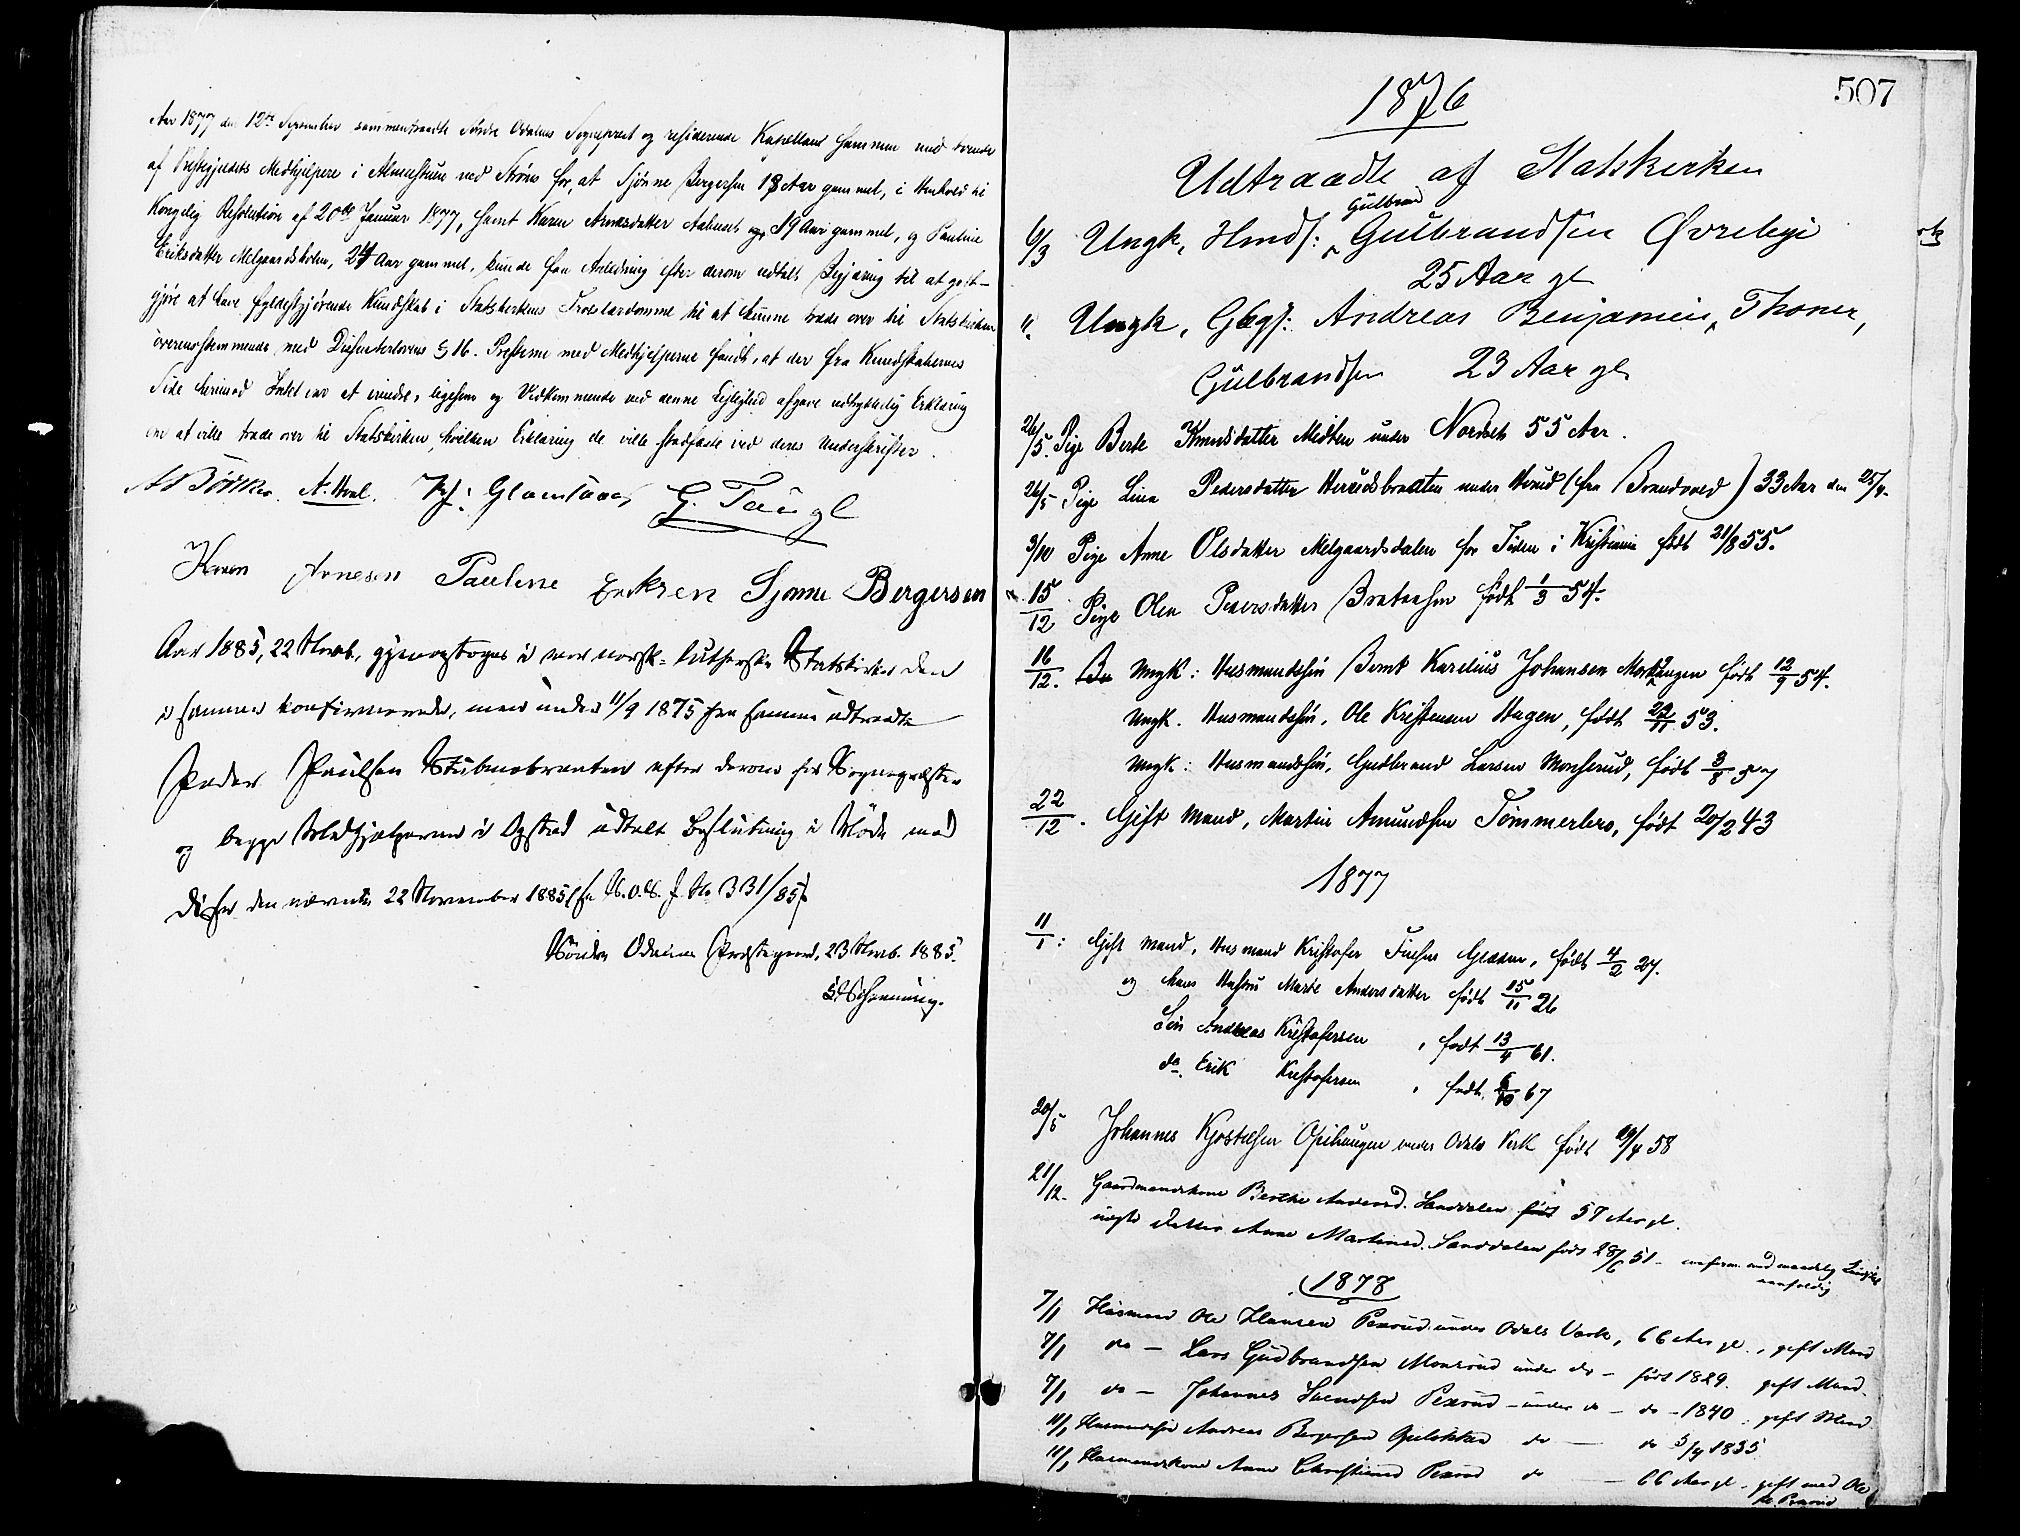 Aar 1877 den 12te September sammentraadte Søndre Odalens Sogneprest og residerende Kapellan sammen med tvende
af Prestegjeldets Medhjelpere i Almuestuen ved Strøm for, at Sjønne Bergersen 18 Aar gammel, i Henhold til
Kongelig Resolution af 20de Januar 1877, samt Karen Arnesdatter 19 Aar gammel, og Pauline
Eriksdatter Melgaardsholen, 24 Aar gammel, kunde faa Anledning efter derom udtalt Begjæring til at godt-
gjøre at have fyldestgjørende Kundskab i Statskirkens Troeslærdomme til at kunne træde over til Statskirken
overensstemmende med Dissenterlovens § 16. Presterne med Medhjelperne fandt, at der fra Kundskabernes
Side herimod Intet var at erindre, ligesom og Vedkommende ved denne Leilighed afgave udtrykkelig Erklæring
om at ville træde over til Statskirken, hvilken Erklæring de ville stadfæste ved deres Underskrifter.
A. Hval. G. Taugl
Karen Arnesen Pauline Erikzen Sjønne Bergersen
Aar 1885, 22 Novb. gjenoptoges i vor norsk-lutherske Statskirke den
i samme konfirmerede, men under 11/9 1875 fra samme udtraadte
Peder Paulsen Stubnebraaten efter derom for Sognepresten
og begge Medhjælperne i Opstad udtalt Beslutning i Møde med
disse den nævnte 22 November 1885 331/85
Søndre Odalen Prestegaard, 23 Novb. 1885.
507
1876
Udtraadte af Statskirken
Gulbrand
6/3 Ungk, Hmds: Gulbrandsen Øvrebye
25 Aar gl
" Ungk, Gbgs: Andreas Benjamin, Thoner,
Gulbrandsen 23 Aar gl.
26/5. Pige Berte Knudsdatter Midten under Nordset 55 Aar.
26/5 Pige Lina Pedersdatter Herredsbraaten under Herud (fra Brandvold) 33 Aar den 25/4.
3/10 Pige Anne Olsdatter Melgaardsdalen for Tiden i Kristiania født 21/8 55.
15/12 Pige Olea Pedersdatter født 1/3 54.
16/12. Ungk: Husmandssøn Bernt Karelius Johansen født 12/9 54.
Ungk. Husmandssøn, Ole Kristensen Hagen, født 29/11 53.
Ungk: Husmandssøn, Gudbrand Larsen Monserud, født 3/8 57
22/12. Gift Mand, Martin Amundsen Tømmerbro, født 20/2 43
1877
11/1: Gift Mand, Husmand Kristofer født 4/2 27.
og Hans Hustru Marte Andersdatter født 15/11 26
Søn Andreas Kristofersen , født 13/4 61.
do. Erik Kristofersen , født 67
20/5 Johannes Kjøstelsen Opihaugen under Odals Verk født 19/4 58
21/12. Gaardmandskone Berthe Andersd. Sanddalen født 57 Aar gl.
ugift Datter Anne Martinsd. Sanddalen født 28/6 51.
1878
7/1 Husmand Ole Hansen Pexrud under Odals Værk, 66 Aar gl., gift Mand
7/1 do – Lars Gudbrandsen Monsrud under do – født 1829. gift Mand.
7/1 do – Johannes Svendsen Pexrud – under do – do – 1840. gift Mand
11/1 Husmandssøn Andreas Bergersen do – do 3/4 1835
11/1 Husmandskone Anne Christiansd Pexrud do – 66 Aar gl. gift med Ole
H. Pexrud